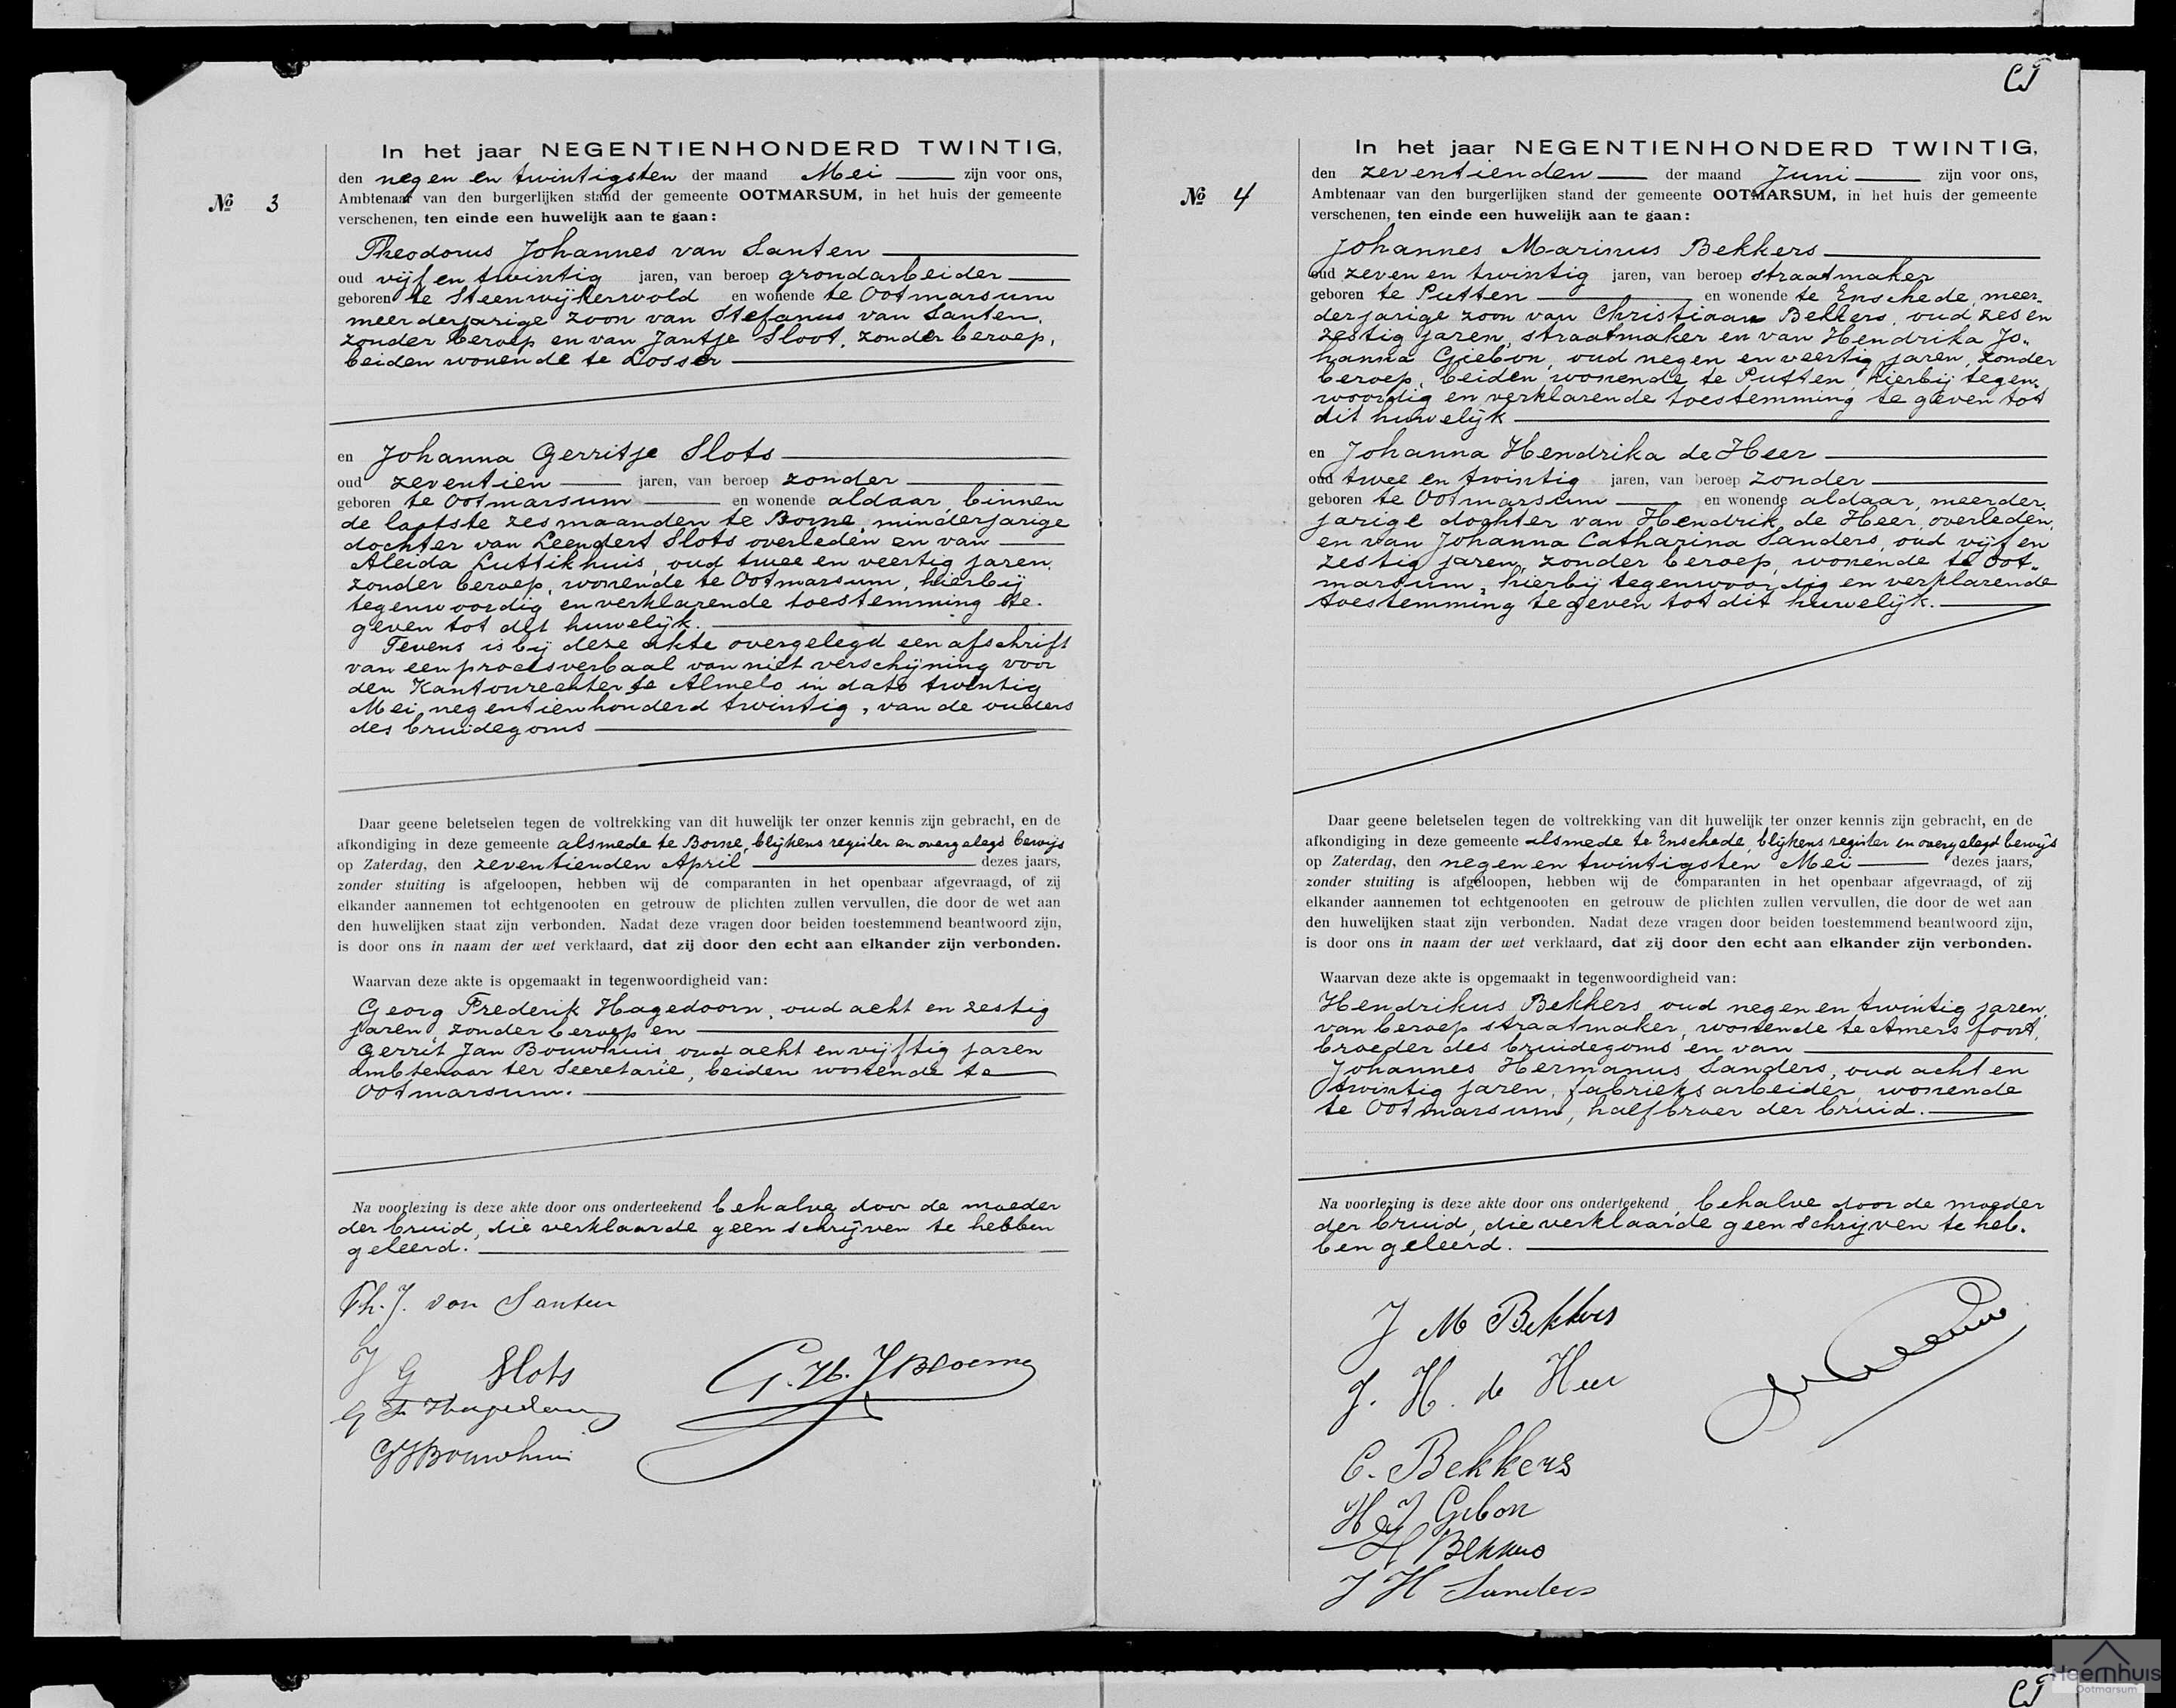 In het jaar NEGENTIENHONDERD TWINTIG,
den negen en twintigsten der maand Mei zijn voor ons,
№ 3
Ambtenaar van den burgerlijken stand der gemeente OOTMARSUM, in het huis der gemeente
verschenen, ten einde een huwelijk aan te gaan:
Theodorus Johannes van Santen
oud vijf en twintig jaren, van beroep grondarbeider
geboren te Steenwijkerwold en wonende te Ootmarsum
meerderjarige zoon van Stefanus van Santen,
zonder beroep en van Jantje Sloot, zonder beroep,
beiden wonende te Losser
en Johanna Gerritje Slots
oud zeventien jaren, van beroep zonder
geboren te Ootmarsum en wonende aldaar, binnen
de laatste zes maanden te Borne, minderjarige
dochter van Leendert Slots overleden en van
Aleida Luttikhuis, oud twee en veertig jaren,
zonder beroep, wonende te Ootmarsum, hierbij
tegenwoordig en verklarende toestemming te
geven tot dit huwelijk.
Tevens is bij deze akte overgelegd een afschrift
van een procesverbaal van niet verschijning voor
den Kantonrechter te Almelo in dato twintig
Mei negentienhonderd twintig, van de ouders
des bruidegoms
Daar geene beletselen tegen de voltrekking van dit huwelijk ter onzer kennis zijn gebracht, en de
afkondiging in deze gemeente alsmede te Borne, blijkens register en overgelegd bewijs
op Zaterdag, den zeventienden April dezes jaars,
zonder stuiting is afgeloopen, hebben wij de comparanten in het openbaar afgevraagd, of zij
elkander aannemen tot echtgenooten en getrouw de plichten zullen vervullen, die door de wet aan
den huwelijken staat zijn verbonden. Nadat deze vragen door beiden toestemmend beantwoord zijn,
is door ons in naam der wet verklaard, dat zij door den echt aan elkander zijn verbonden.
Waarvan deze akte is opgemaakt in tegenwoordigheid van:
Georg Frederik Hagedoorn, oud acht en zestig
jaren, zonder beroep en
Gerrit Jan Bouwhuis, oud acht en vijftig jaren
ambtenaar ter Secretarie, beiden wonende te
Ootmarsum.
Na voorlezing is deze akte door ons onderteekend behalve door de moeder
der bruid, die verklaarde geen schrijven te hebben
geleerd.
Th. J. van Santen
J G Slots
G F Hagedoorn
G J Bouwhuis
G. H. J Bloemen
CJ
In het jaar NEGENTIENHONDERD TWINTIG,
den zeventienden der maand Juni zijn voor ons,
№ 4
Ambtenaar van den burgerlijken stand der gemeente OOTMARSUM, in het huis der gemeente
verschenen, ten einde een huwelijk aan te gaan:
Johannes Marinus Bekkers
oud zeven en twintig jaren, van beroep straatmaker
geboren te Putten en wonende te Enschede, meer-
derjarige zoon van Christiaan Bekkers, oud zes en
zestig jaren, straatmaker en van Hendrika Jo-
hanna Giebon, oud negen en veertig jaren, zonder
beroep, beiden wonende te Putten, hierbij tegen-
woordig en verklarende toestemming te geven tot
dit huwelijk
en Johanna Hendrika de Heer
oud twee en twintig jaren, van beroep zonder
geboren te Ootmarsum en wonende aldaar, meerder-
jarige dochter van Hendrik de Heer, overleden,
en van Johanna Catharina Sanders, oud vijf en
zestig jaren, zonder beroep, wonende te Oot-
marsum, hierbij tegenwoordig en verklarende
toestemming te geven tot dit huwelijk.
Daar geene beletselen tegen de voltrekking van dit huwelijk ter onzer kennis zijn gebracht, en de
afkondiging in deze gemeente alsmede te Enschede, blijkens register en overgelegd bewijs
op Zaterdag, den negen en twintigsten Mei dezes jaars,
zonder stuiting is afgeloopen, hebben wij de comparanten in het openbaar afgevraagd, of zij
elkander aannemen tot echtgenooten en getrouw de plichten zullen vervullen, die door de wet aan
den huwelijken staat zijn verbonden. Nadat deze vragen door beiden toestemmend beantwoord zijn,
is door ons in naam der wet verklaard, dat zij door den echt aan elkander zijn verbonden.
Waarvan deze akte is opgemaakt in tegenwoordigheid van:
Hendrikus Bekkers oud negen en twintig jaren,
van beroep straatmaker, wonende te Amersfoort,
broeder des bruidegoms en van
Johannes Hermanus Sanders, oud acht en
twintig jaren, fabrieksarbeider, wonende
te Ootmarsum, halfbroer der bruid.
Na voorlezing is deze akte door ons onderteekend, behalve door de moeder
der bruid, die verklaarde geen schrijven te heb-
ben geleerd.
J M Bekkers
J. H. de Heer
C. Bekkers
H J Gebon
H Bekkers
J H Sanders
CJ
Heemhuis
Ootmarsum